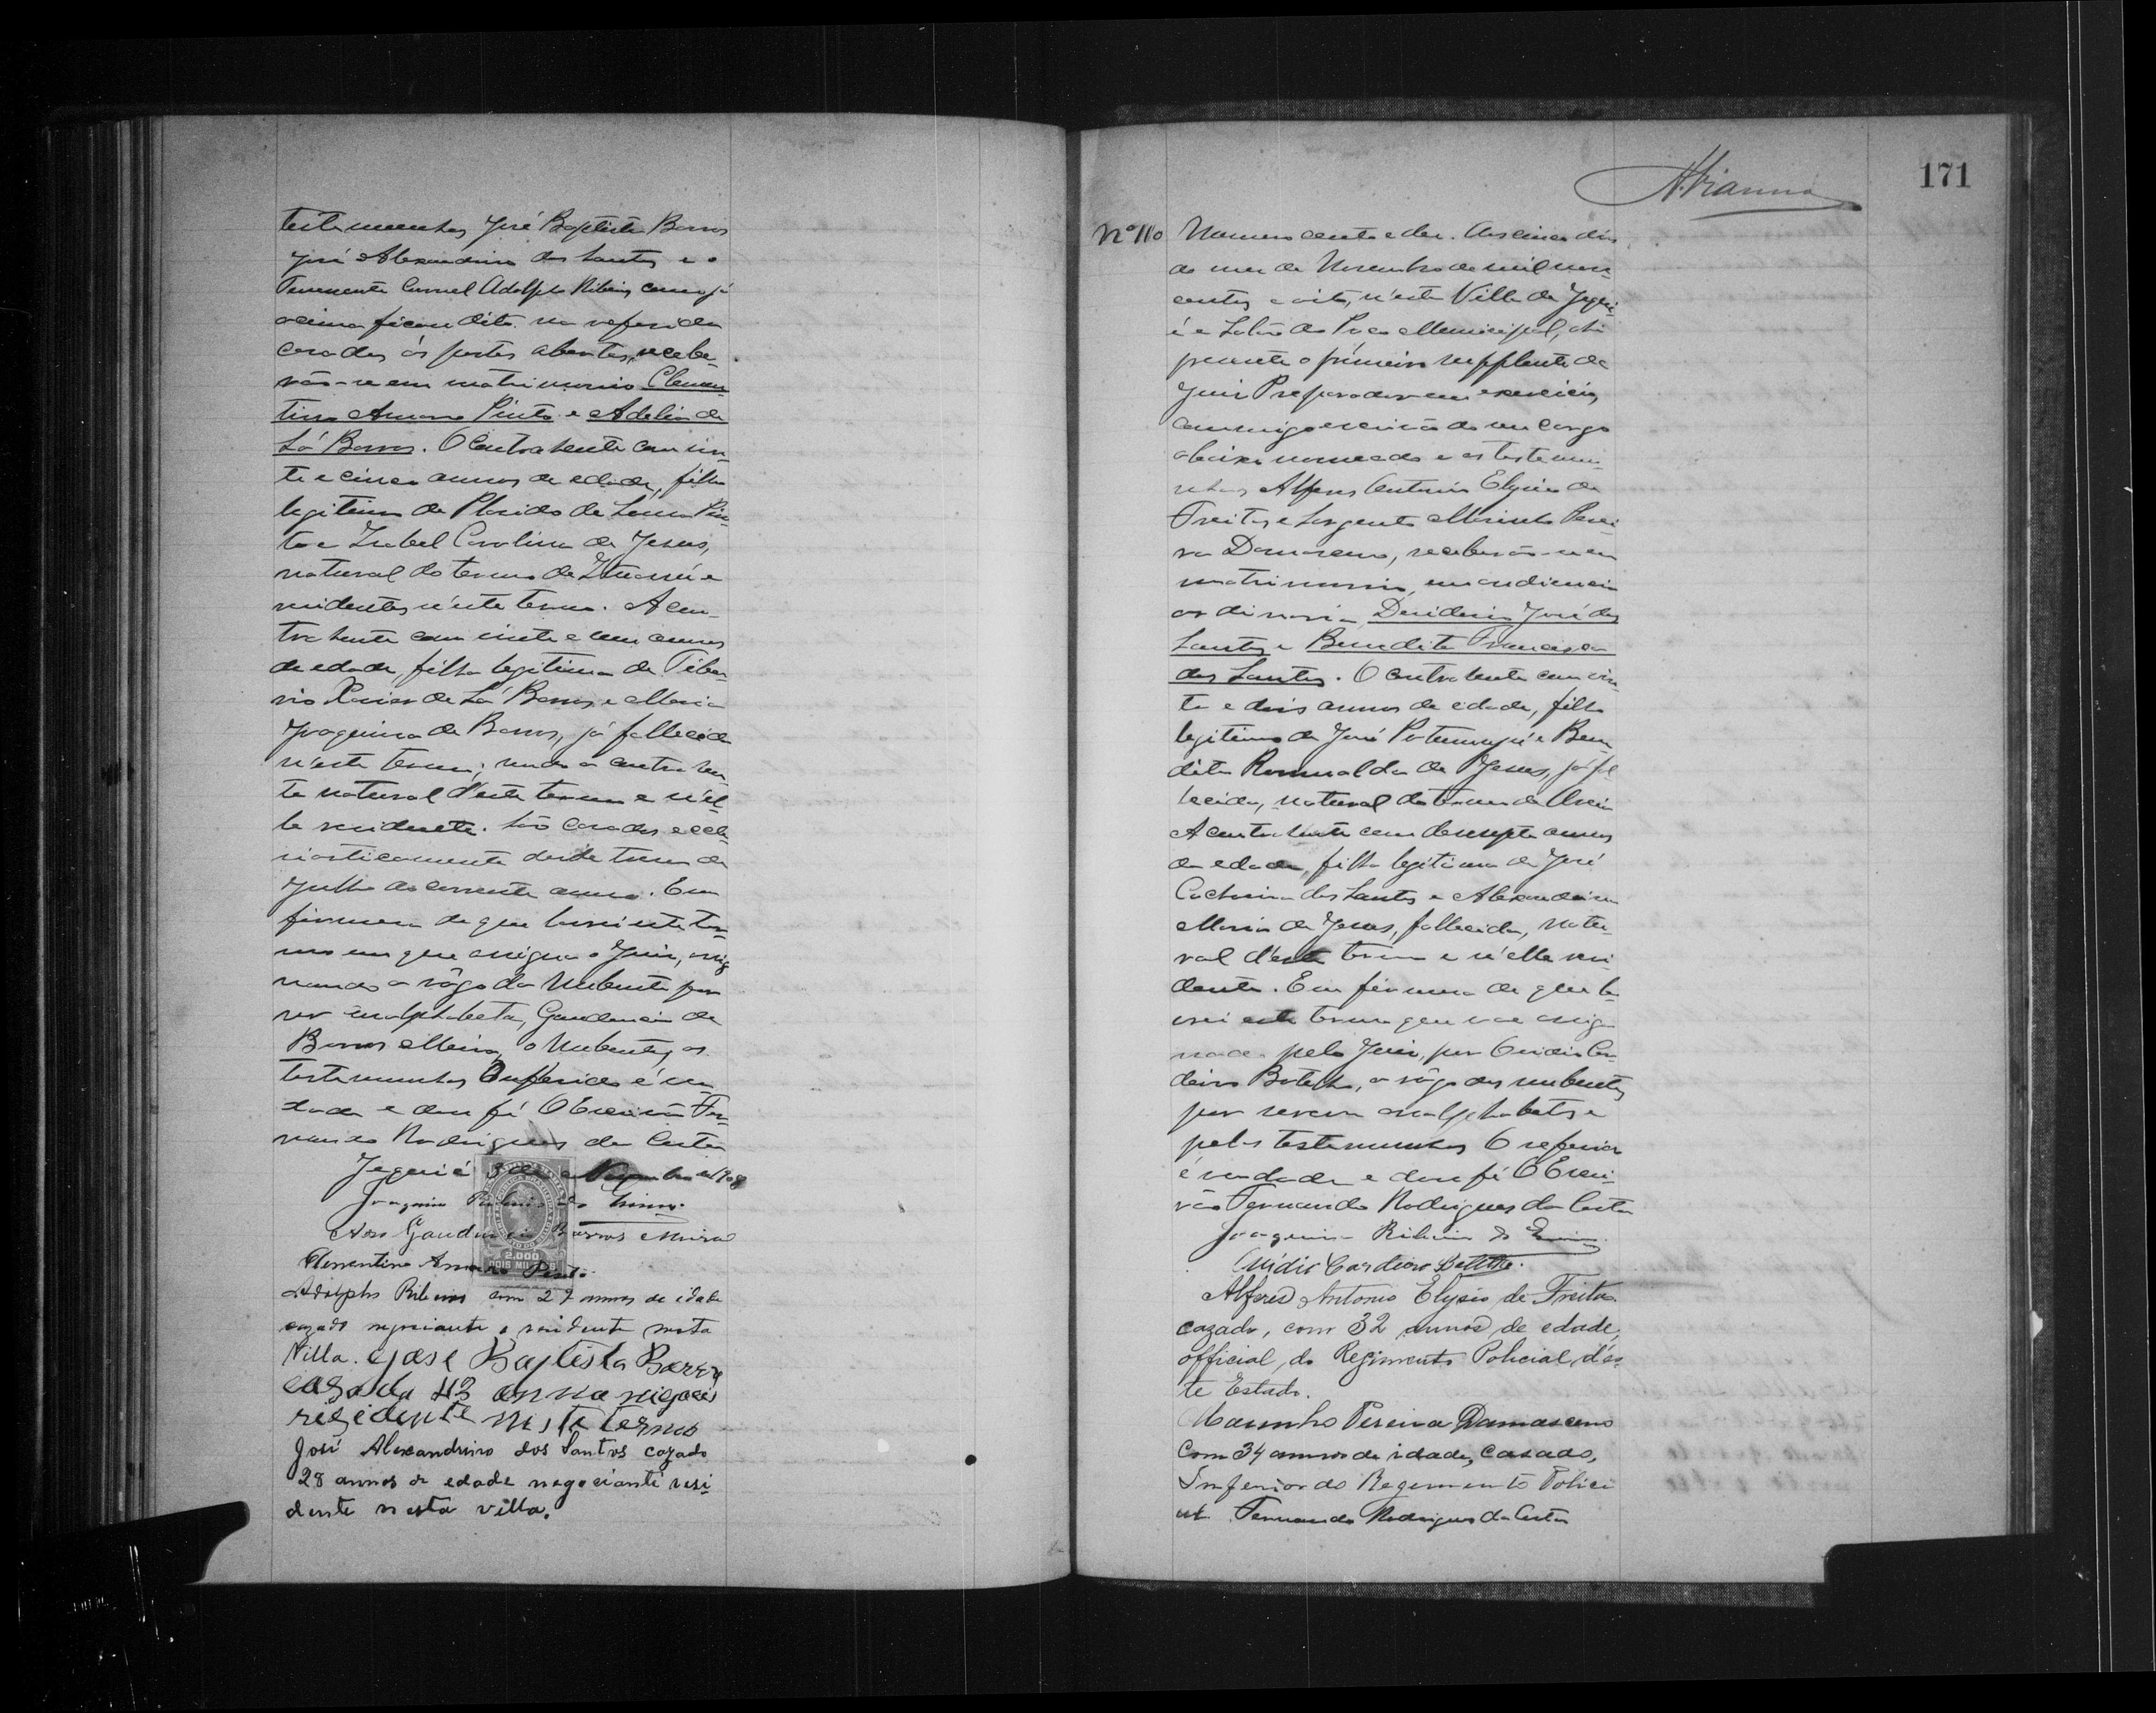 testemunhas José Baptista Barros
José Alexandrino dos Santos e o
Tenente Coronel Adolpho Ribeiro como já
acima ficou dito na referida
casa das ás portas abertas, recebe-
rão-se em matrimonio Clemen
tino Amaro Pinto e Adelia de
Sá Barros. O contrahente com vin-
te e cinco annos de edade, filho
legitimo de Placido de Souza Pin
to e Izabel Carolina de Jesus,
natural do termo de
residentes n'este termo. A con-
trahente com vinte e um annos
de edade, filha legitima de Tiber-
rio Xavier de Sá Barros e Maria
Joaquina de Barros, já fallecida
n'este termo; sendo a contrahen
te natural d'este termo e n'el-
le residente. São casados eccle
siasticamente desde treze de
Julho do corrente anno. Em
firmeza do que lavrei este ter-
mo em que assigna o Juiz, assig
nando a rôgo da Nubente por
ser analphabeta, Gaudencio de
Barros Meira, o Nubente, as
testemunhas O referido é ver
dade e dou fé O Escrivão Fer-
nando Rodrigues da Costa
Jequié 3 de Novembro de 1908
Joaquim Ribeiro
Gaudencio Barros Meira
Clementino Amaro Pinto
2.000
DOIS MIL REIS
Adolpho Ribeiro com 29 annos de idade
cazado negociante e residente nesta
Villa. José Baptista Barros
casado 43 anno negocis
rezidente neste termo
José Alexandrino dos Santos cazado
28 annos de edade negociante resi-
dente nesta villa.
171
A. Vianna
Nº 110 Numero cento e dez. Aos cinco dias
do mez de Novembro de mil nove
centos e oito, n'esta Villa de Jequi-
é e Salão do Paço Municipal, ahi
perante o primeiro supplente de
Juiz Preparador em exercicio,
commigo escrivão do seu cargo
abaixo nomeado e as testemu-
nhas Alferes Antonio Elysio de
Freitas e Sargento Marinho Perei
ra Damasceno, receberão-se em
matrimonio, em audiencia
ordinaria, Desiderio José dos
Santos e Benedita Francisca
dos Santos. O contrahente com vin-
te e dois annos de edade, filho
legitimo de José e Bene
dita Romualda de Jesus, já fal
lecida, natural do termo de Areia
A contrahente com desesepte annos
de edade, filha legitima de José
dos Santos e Alexandrina
Maria de Jesus, fallecida, natu-
ral d'este termo e n'elle resi-
dente. Em firmeza do que la-
vrei este termo que vae assig-
nado pelo Juiz, por Ovidio Cor-
deiro Botelho, a rôgo dos nubentes
por serem analphabetos e
pelas testemunhas O referido
é verdade e dou fé O Escri-
vão Fernando Rodrigues da Costa
Joaquim Ribeiro
Ovidio Cordeiro Botelho.
Alferes Antonio Elysio de Freitas
cazado, com 32 annos de edade,
official do Regimento Policial d'es-
te Estado.
Marinho Pereira Damasceno
com 34 annos de idade, casado,
Inferior do Regimento Polici
al Fernando Rodrigues da Costa